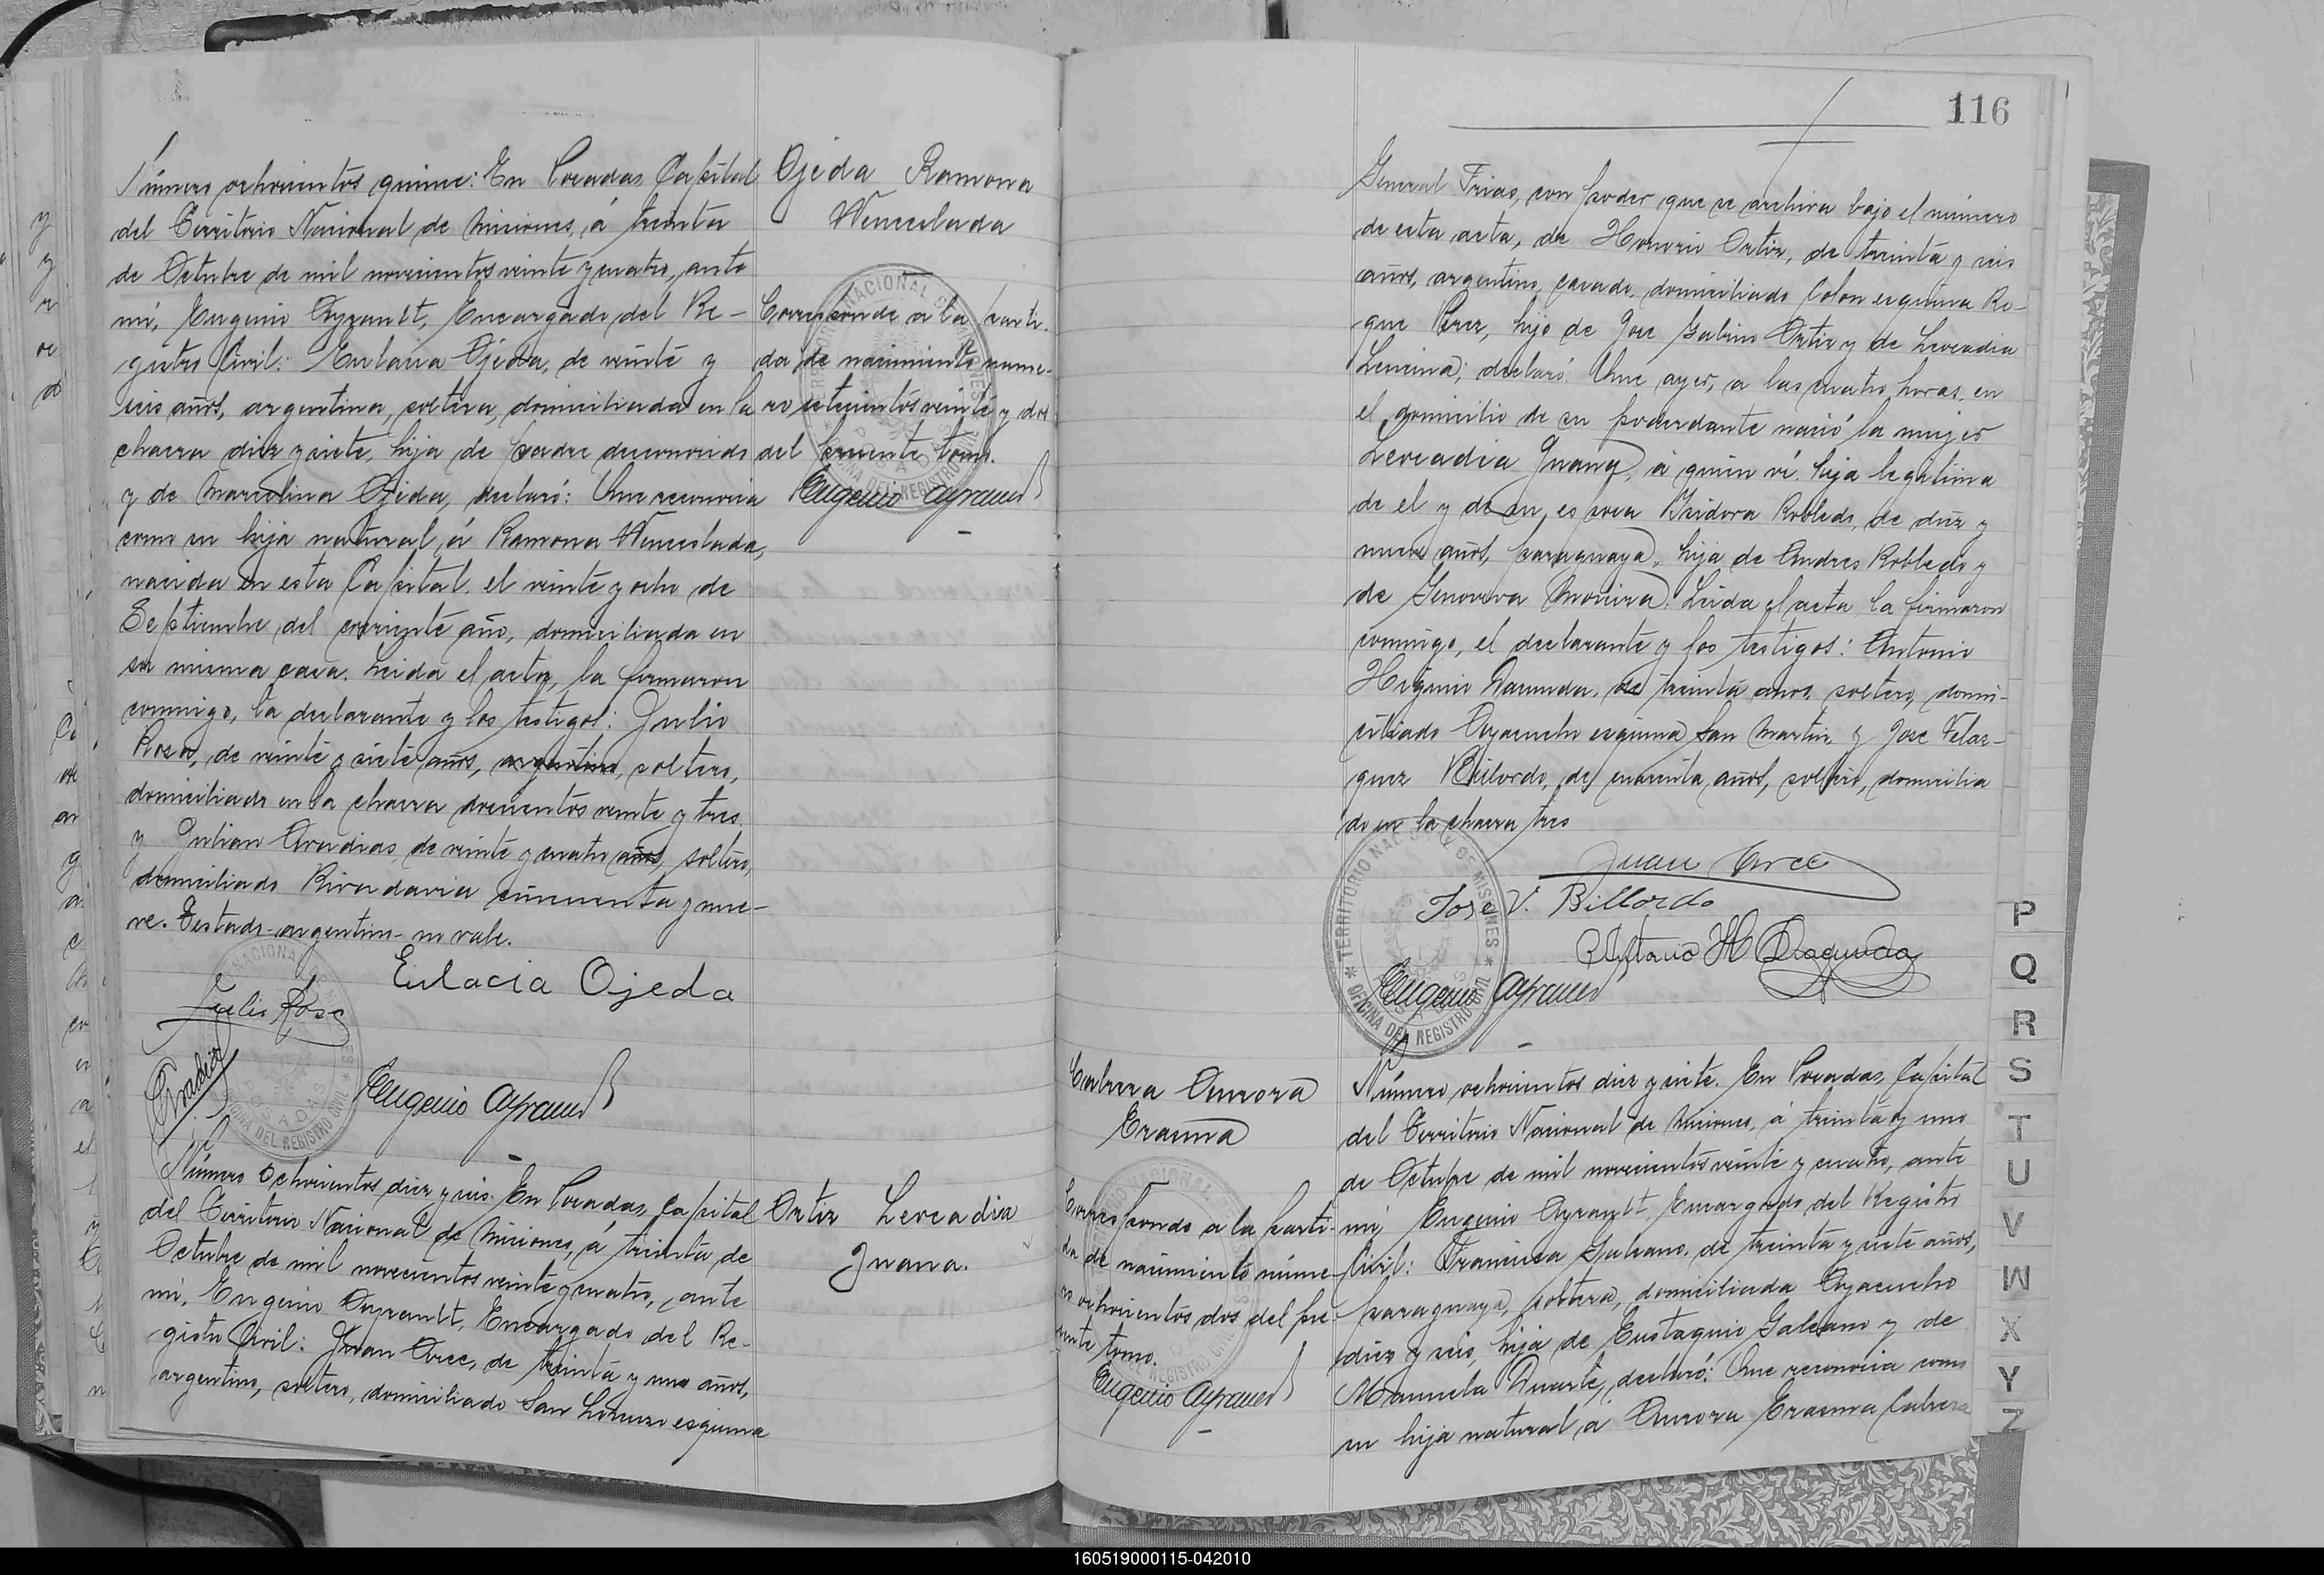 Número ochocientos quince: En Posadas, Capital
del Territorio Nacional de Misiones, á treinta
de Octubre de mil novecientos veinte y cuatro, ante
mí, Eugenio Ayrault, Encargado del Re-
gistro Civil: Eulacia Ojeda, de veinte y
seis años, argentina, soltera, domiciliada en la
chacra diez y siete, hija de padre desconocido
y de Marcelina Ojeda, declaró: Que reconocia
como su hija natural, á Ramona Wenceslada,
nacida en esta Capital, el veinte y ocho de
Septiembre del corriente año, domiciliada en
su misma casa. Leida el acta, la firmaron
conmigo, la declarante y los testigos: Julio
Rosa, de veinte y siete años, argentino, soltero,
domiciliado en la chacra doscientos veinte y tres
y Julian Aradias, de veinte y cuatro años, soltero,
domiciliado Rivadavia cincuenta y nue-
ve. Testado-argentino-no vale.
Eulacia Ojeda
Julio Rosa
Aradias
Eugenio Ayrault
Ojeda Ramona
Wenceslada
Corresponde a la parti-
da de nacimiento nume-
ro setecientos veinte y dos
del presente tomo.
Eugenio Ayrault
Número Ochocientos diez y seis. En Posadas, Capital
del Territorio Nacional de Misiones, á treinta de
Octubre de mil novecientos veinte y cuatro, ante
mí, Eugenio Ayrault, Encargado del Re-
gistro Civil: Juan Arce, de treinta y uno años,
argentino, soltero, domiciliado San Lorenzo esquina
Ortiz Leocadia
Juana.
116
General Frias, con poder que se archiva bajo el número
de esta acta, de Honorio Ortiz, de treinta y seis
años, argentino, casado, domiciliado Colon esquina Ro-
que Perez, hijo de Jose Gabino Ortiz y de Leocadia
Lencina; declaró: Que ayer, a las cuatro horas, en
el domicilio de su poderdante nació la mujer
Leocadia Juana, á quien ví, hija legitima
de el y de su esposa Isidora Robledo, de diez y
nueve años, paraguaya, hija de Andres Robledo y
de Genoveva Moreira. Leida el acta, la firmaron
conmigo, el declarante y los testigos: Antonio
Higinio Dacunda, de treinta anos, soltero, domi-
ciliado Ayacucho esquina San Martin, y Jose Velas-
quez Billordo, de cuarenta años, soltero, domicilia
do en la chacra tres
Juan Arce
Jose V. Billordo
Antonio H Dacunda
Eugenio Ayrault
TERRITORIO NACIONAL DE MISIONES
OFICINA DEL REGISTRO CIVIL
Cabrera Aurora
Erasma
Corresponde a la parti-
da de nacimiento núme-
ro ochocientos dos del pre-
sente tomo.
Eugenio Ayrault
Número ochocientos diez y siete. En Posadas, Capital
del Territorio Nacional de Misiones, á treinta y uno
de Octubre de mil novecientos veinte y cuatro, ante
mí, Eugenio Ayrault, Encargado del Registro
Civil: Francisca Galeano, de treinta y siete años,
paraguaya, soltera, domiciliada Ayacucho
diez y seis, hija de Eustaquio Galeano y de
Manuela Duarte, declaró: Que reconocia como
su hija natural, á Aurora Erasma Cabrera
P
Q
R
S
T
U
V
W
X
Y
Z
160519000115-042010